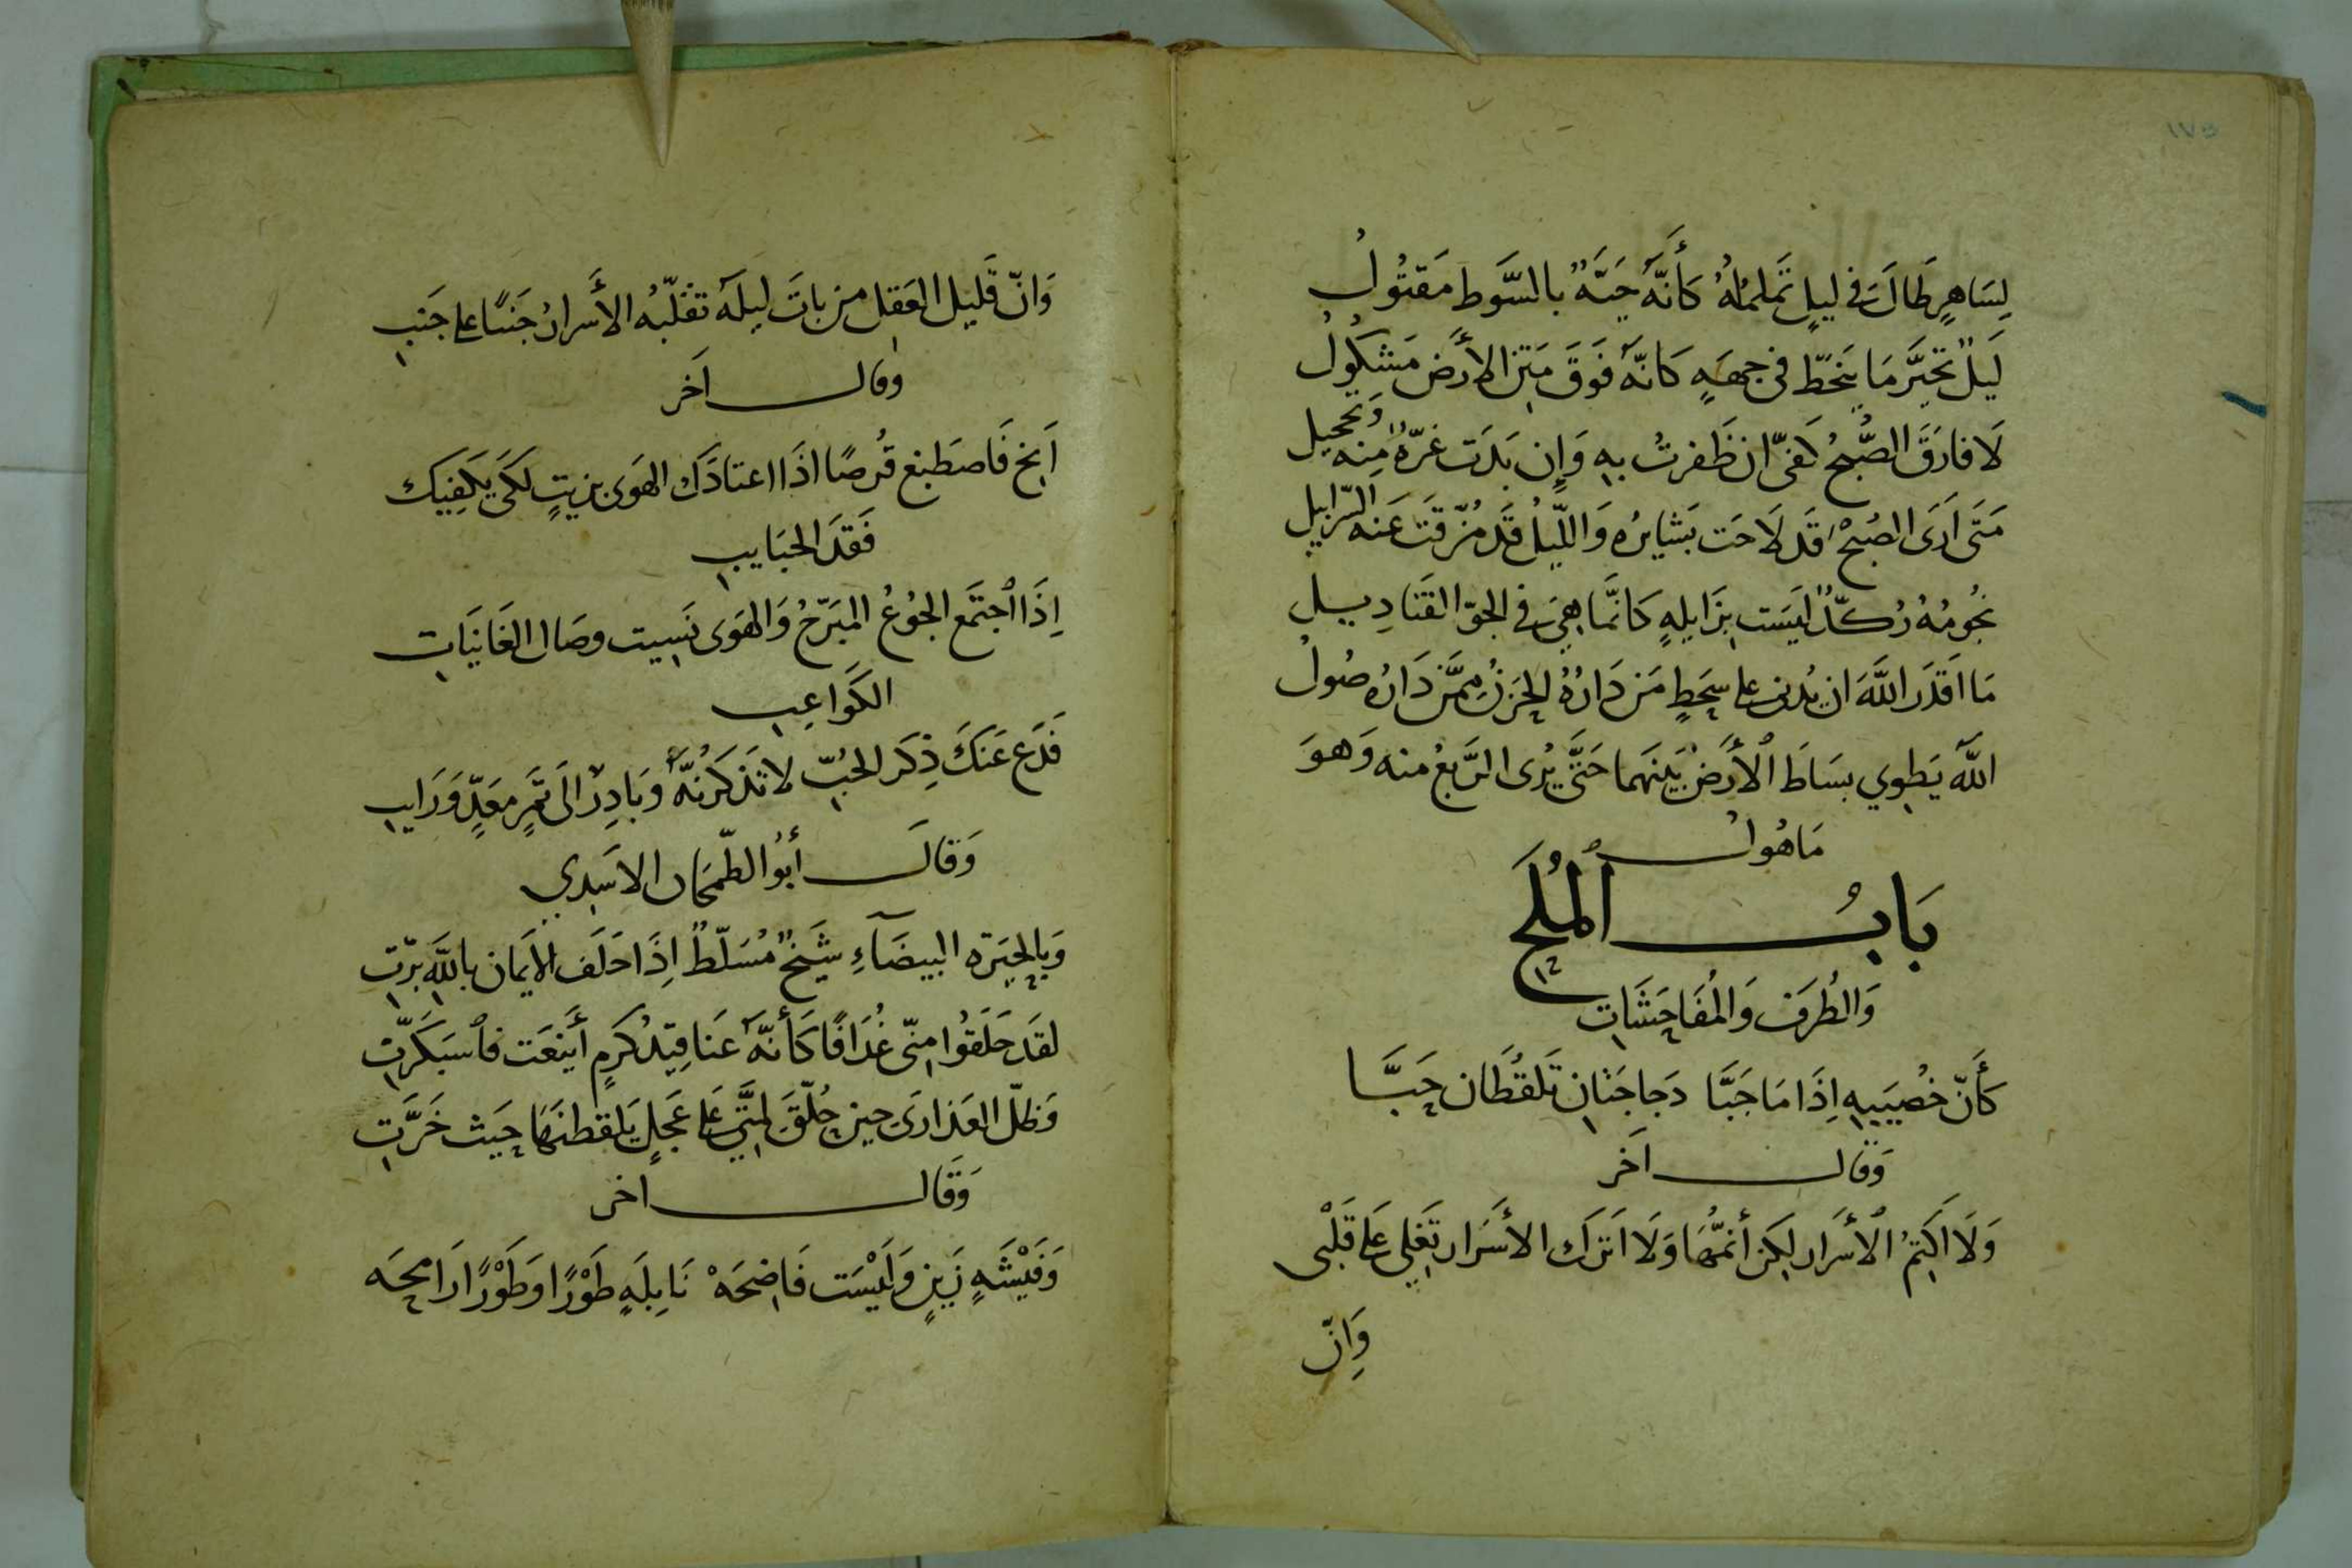 ١٧٥
لِسَاهِرٍ طَالَ فى لَيلٍ تَملمُلُهُ كَأَنَّهُ حَيَّةٌ بالسَّوط مَقتُولُ
لَيلٌ تحيَّر مَا يَنحَطّ فى جهَةٍ كَانّهُ فَوقَ مَتن الأَرض مَشكُولُ
لَا فارَقَ الصُّبحُ كَفىّ ان ظَفرتُ بهِ وَإِن بَدَت غرّةٌ مِنهُ وَتَحجيل
مَتَى اَرَى الصُبحَ قَد لَاحَت بَشايرُه وَاللَّيلُ قَد مُزّقَت عَنه السّرَابيل
نجُومُهُ رُكّدٌ لَيسَت بِزَايلهٍ كَانَّما هِىَ فى الجوّ القَنَادِيل
مَا اَقدَر اللهَ ان يُدنى على سحَطٍ مَن دَارُهُ الحَزنُ مِمَّن دَارُه صُولُ
اللهُ يَطوِي بسَاطَ الأَرضِ بَينَهما حَتَّى يُرى الرَّبعُ منه وَهوَ
مَاهُولُ
بَابُ المُلَحِ
وَالطُرَف وَالمُفَاحَشَاتِ
كأَنّ خُصيَيهِ اِذَا مَا جَبَّا دَجاجَتَانِ تَلقُطَان حَبَّا
وَقالَ آخَر
وَلَا اَكتمُ الأَسرَار لكِن أنمُّهَا وَلَا اَترَك الأَسرَار تَغلِي عَلَى قَلْبى
وَانّ
وَانّ قَليل العَقلِ مَن باتَ لَيلَهُ تقَلّبُه الأَسرارُ جَنبًا على جَنبِ
وقالَ آخَر
اَنِخ فَاصطَبِغ قُرصًا اذَا اعتادَكَ الهَوى بزيتٍ لكَى يَكفِيك
فَقدَ الحبَايبِ
اِذَا اجتَمَع الجُوعُ المبَرّحُ وَالهَوى نَسِيت وصَال الغَانيَاتِ
الكَوَاعِبِ
فَدَع عَنكَ ذِكَر الحُبّ لا تَذكرَنّهُ وَبَادِرْ الَى تَمرٍ مَعَدٍّ وَرَايبِ
وَقَالَ أبُو الطّمحَان الاسَدِي
وَبِالحِيَرَة البيضَآءِ شَيخٌ مُسَلّطٌ اِذَا حَلَف الاَيمَان باللهَ بَرّتِ
لقَد حَلَقُوا مِنّى غُدَافًا كَأَنّهُ عَناقِيدُ كرَمٍ أَينَعَت فاسبَكرّتِ
وَظلّ العَذارَى حين حُلّقَ لمتَّي عَلَى عَجَلٍ يَلقطنَهَا حَيث خَرَّتِ
وَقَالَ آخر
وَفَيْشَهٍ زَينٍ وَلَيْسَت فَاضِحَهْ نَابِلَهٍ طَوْرًا وَطَوْرًا رَامحَه